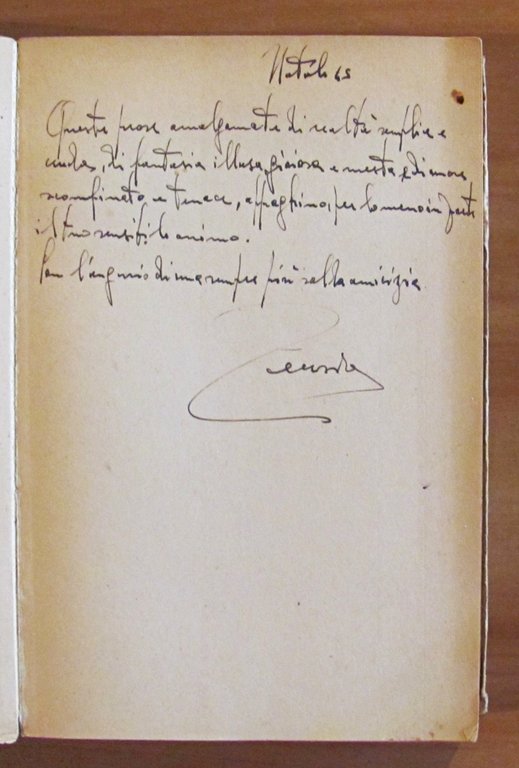 Natale 45
Queste prose amalgamate di realtà semplice e
cruda, di fantasia illusa, gioiosa e mesta, e di amore
sconfinato e tenace, appaghino, per lo meno in parte
il tuo sensibile animo.
Con l'augurio di una sempre più salda amicizia.